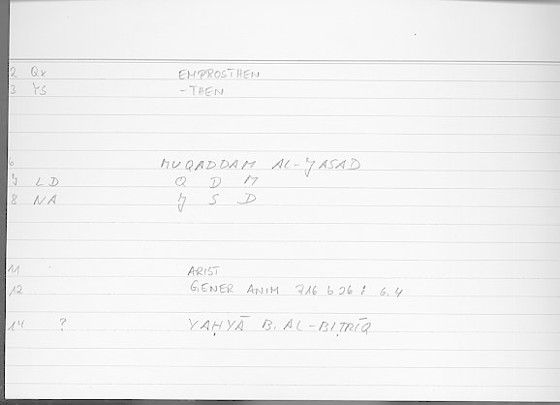 2 Qx EMPROSTHEN
3 YS -THEN
6 MUQADDAM AL-JASAD
7 LD Q D M
8 NA J S D
11 ARIST
12 GENER ANIM 716 b 26 : 6.4
14 ? YAḤYĀ B. AL-BIṬRĪQ